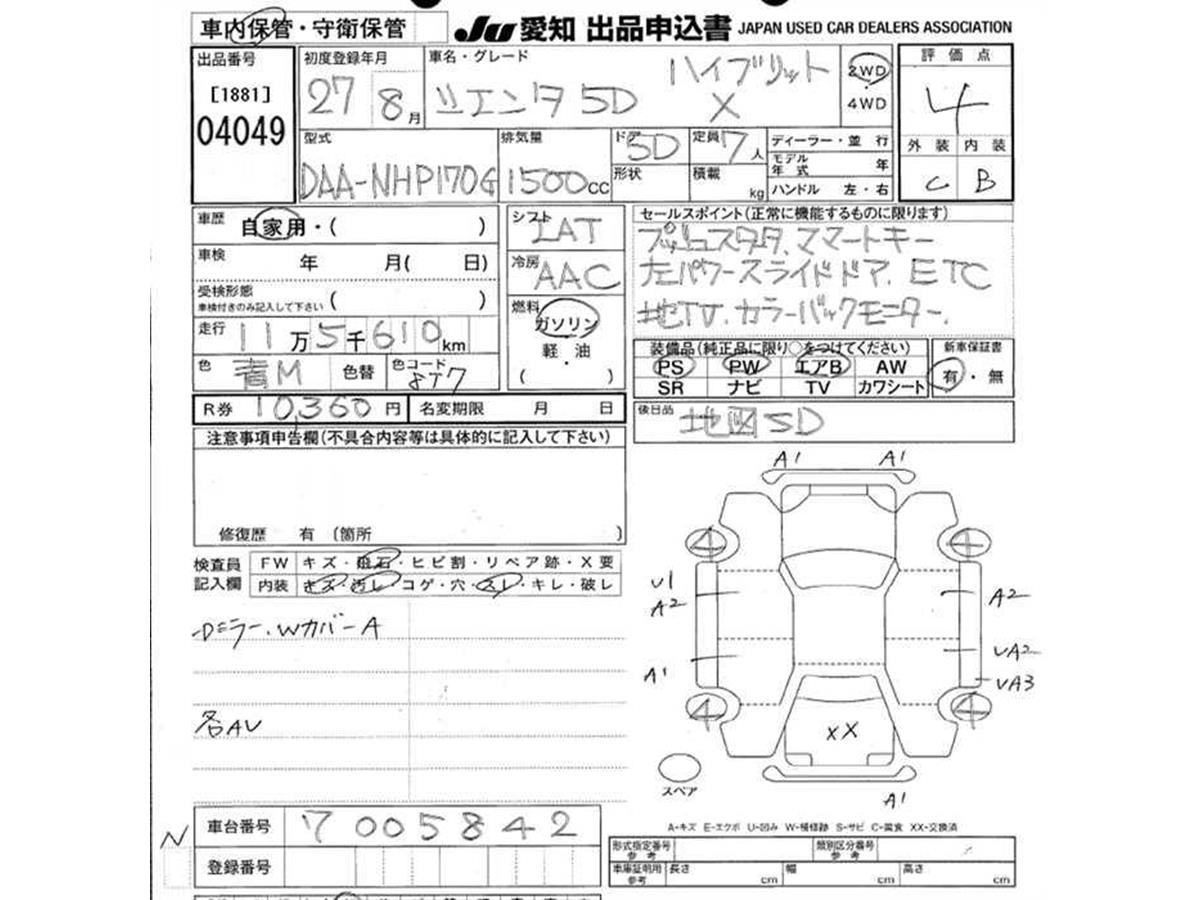 車内保管・守衛保管 JU 愛知 出品申込書 JAPAN USED CAR DEALERS ASSOCIATION
出品番号 初度登録年月 車名・グレード ハイブリット 2WD 評価点
[1881] 27 8月 シエンタ 5D X 4WD 4
04049
型式 排気量 ドア 5D 定員 7人 ディーラー・並行 外装 内装
DAA-NHP170G 1500cc 形状 積載 kg モデル年式 年 C B
ハンドル 左・右
車歴 自家用・( ) シフト IAT セールスポイント(正常に機能するものに限ります)
車検 年 月( 日) 冷房 AAC プッシュスタータ、スマートキー
受検形態 ( ) 左パワースライドドア. ETC
車検付きのみ記入して下さい
燃料 ガソリン 地TV. カラーバックモニター.
走行 11万5千610km 軽・油 装備品(純正品に限り○をつけてください) 新車保証書
色 青M 色替 色コード 8T7 ( ) PS PW エアB AW 有・無
SR ナビ TV カワシート
R券 10,360円 名変期限 月 日 後日品 地図SD
注意事項申告欄(不具合内容等は具体的に記入して下さい)
A1 A1
修復歴 有 〔箇所 〕
検査員 FW キズ・飛石・ヒビ割・リペア跡・X要 4 4
記入欄 内装 キズ・汚レ・コゲ・穴・スレ・キレ・破レ U1
A2 A2
Dミラー.WカバーA
A1 UA2
UA3
4 4
各AU XX
スペア
A1
車台番号 7005842 A-キズ E-エクボ U-凹み W-補修跡 S-サビ C-腐食 XX-交換済
N
登録番号 形式指定番号 参考 類別区分番号 参考
車庫証明用 参考 長さ cm 幅 cm 高さ cm